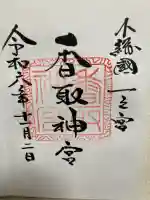 下総國一之宮
香取神宮
令和六年十一月二日